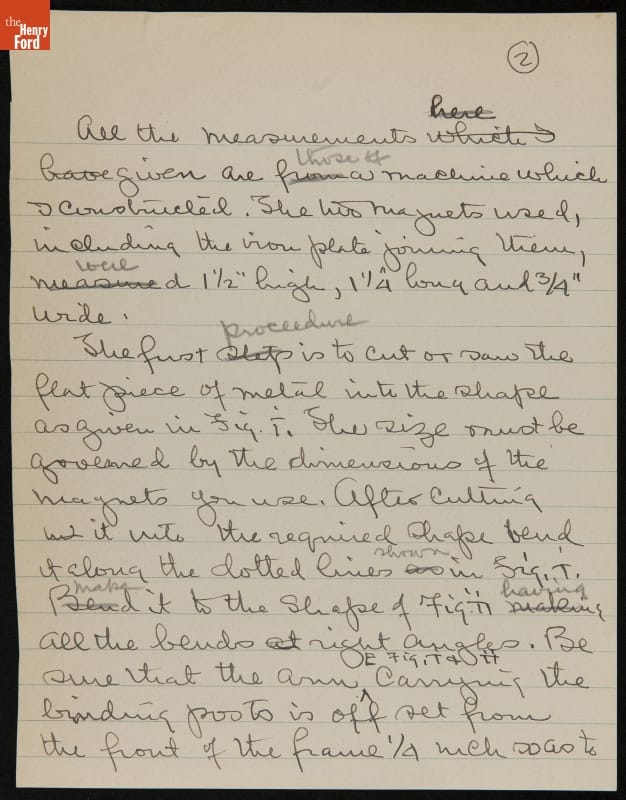 the
Henry
Ford
2
here
All the measurements which I
those of
have given are from a machine which
I constructed. The two magnets used,
including the iron plate joining them,
were
measured 1 1/2" high, 1 1/4" long and 3/4"
wide.
proceedure
The first step is to cut or saw the
flat piece of metal into the shape
as given in Fig. I. The size must be
governed by the dimensions of the
magnets you use. After cutting
it into the required shape bend
shown
it along the dotted lines as in Fig. I.
make having
Bend it to the shape of Fig II making
all the bends at right angles. Be
E Fig. I & II
sure that the arm carrying the
binding posts is off set from
the front of the frame 1/4 inch so as to